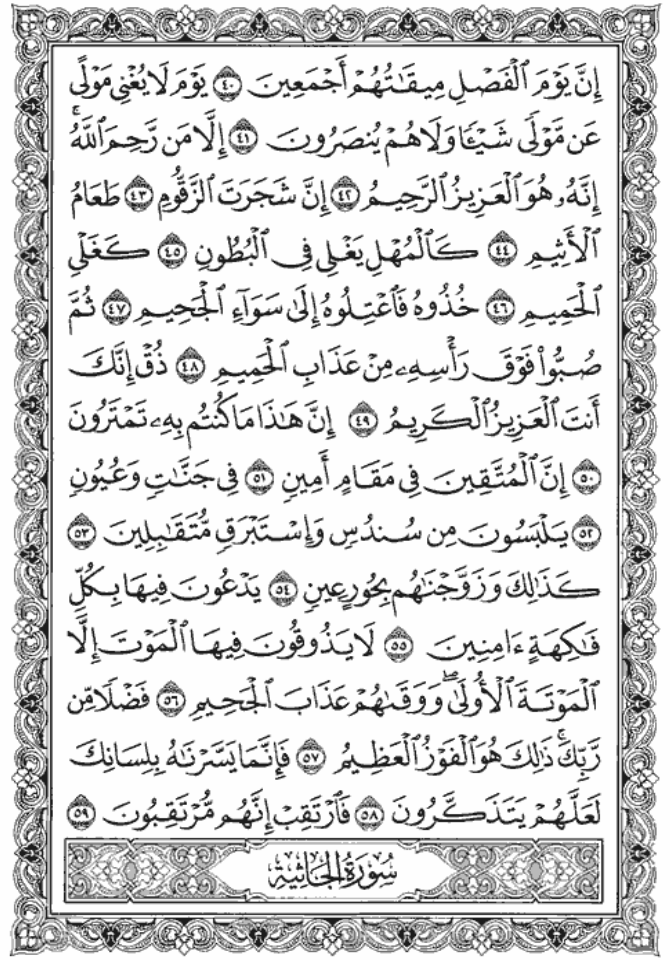 إِنَّ يَوْمَ ٱلْفَصْلِ مِيقَٰتُهُمْ أَجْمَعِينَ ٤٠ يَوْمَ لَا يُغْنِى مَوْلًى
عَن مَّوْلًى شَيْـًٔا وَلَا هُمْ يُنصَرُونَ ٤١ إِلَّا مَن رَّحِمَ ٱللَّهُۚ
إِنَّهُۥ هُوَ ٱلْعَزِيزُ ٱلرَّحِيمُ ٤٢ إِنَّ شَجَرَتَ ٱلزَّقُّومِ ٤٣ طَعَامُ
ٱلْأَثِيمِ ٤٤ كَٱلْمُهْلِ يَغْلِى فِى ٱلْبُطُونِ ٤٥ كَغَلْىِ
ٱلْحَمِيمِ ٤٦ خُذُوهُ فَٱعْتِلُوهُ إِلَىٰ سَوَآءِ ٱلْجَحِيمِ ٤٧ ثُمَّ
صُبُّوا۟ فَوْقَ رَأْسِهِۦ مِنْ عَذَابِ ٱلْحَمِيمِ ٤٨ ذُقْ إِنَّكَ
أَنتَ ٱلْعَزِيزُ ٱلْكَرِيمُ ٤٩ إِنَّ هَٰذَا مَا كُنتُم بِهِۦ تَمْتَرُونَ
٥٠ إِنَّ ٱلْمُتَّقِينَ فِى مَقَامٍ أَمِينٍ ٥١ فِى جَنَّٰتٍ وَعُيُونٍ
٥٢ يَلْبَسُونَ مِن سُندُسٍ وَإِسْتَبْرَقٍ مُّتَقَٰبِلِينَ ٥٣
كَذَٰلِكَ وَزَوَّجْنَٰهُم بِحُورٍ عِينٍ ٥٤ يَدْعُونَ فِيهَا بِكُلِّ
فَٰكِهَةٍ ءَامِنِينَ ٥٥ لَا يَذُوقُونَ فِيهَا ٱلْمَوْتَ إِلَّا
ٱلْمَوْتَةَ ٱلْأُولَىٰۖ وَوَقَىٰهُمْ عَذَابَ ٱلْجَحِيمِ ٥٦ فَضْلًا مِّن
رَّبِّكَۚ ذَٰلِكَ هُوَ ٱلْفَوْزُ ٱلْعَظِيمُ ٥٧ فَإِنَّمَا يَسَّرْنَٰهُ بِلِسَانِكَ
لَعَلَّهُمْ يَتَذَكَّرُونَ ٥٨ فَٱرْتَقِبْ إِنَّهُم مُّرْتَقِبُونَ ٥٩
سُورَةُ الجَاثِيَةِ